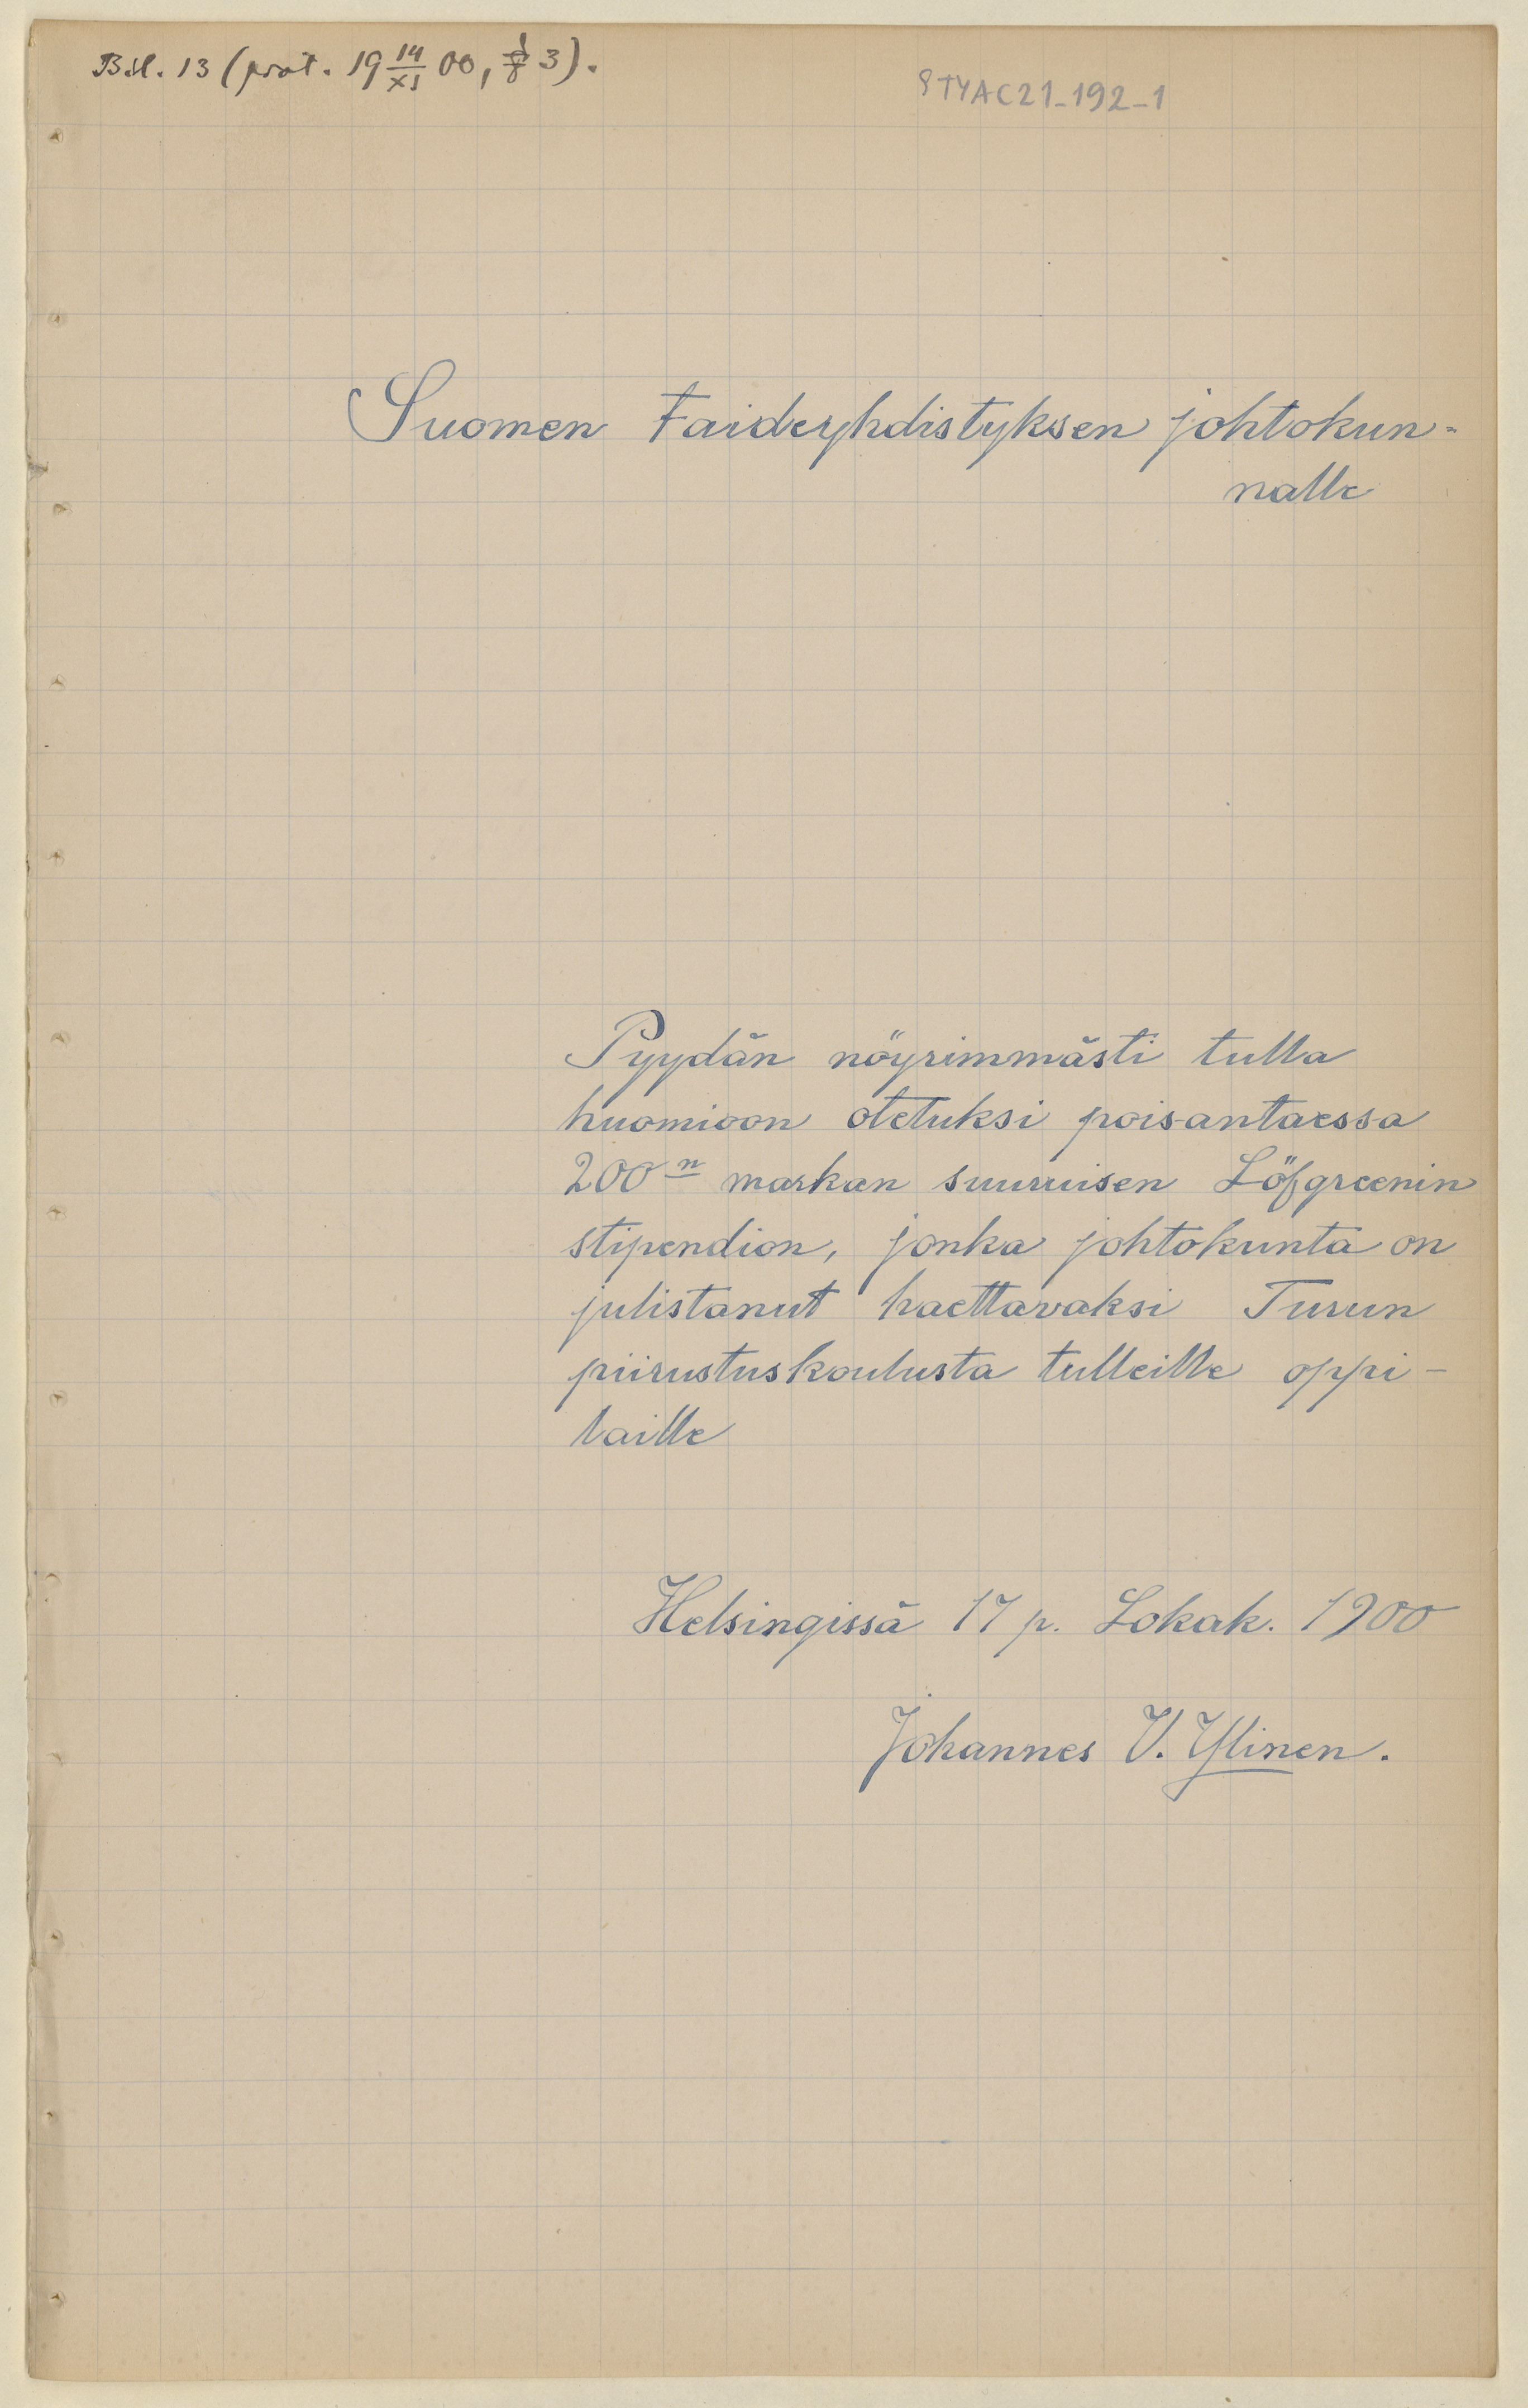 Bil. 13 (prot. 19 14/XI 00, § 3).
STYAC21-192-1
Suomen Taideyhdistyksen johtokun-
nalle
Pyydän nöyrimmästi tulla
huomioon otetuksi poisantaessa
200 n markan suuruisen Löfgreenin
stipendion, jonka johtokunta on
julistanut haettavaksi Turun
piirustuskoulusta tulleille oppi-
laille
Helsingissä 17 p. Lokak. 1900
Johannes V. Ylinen.